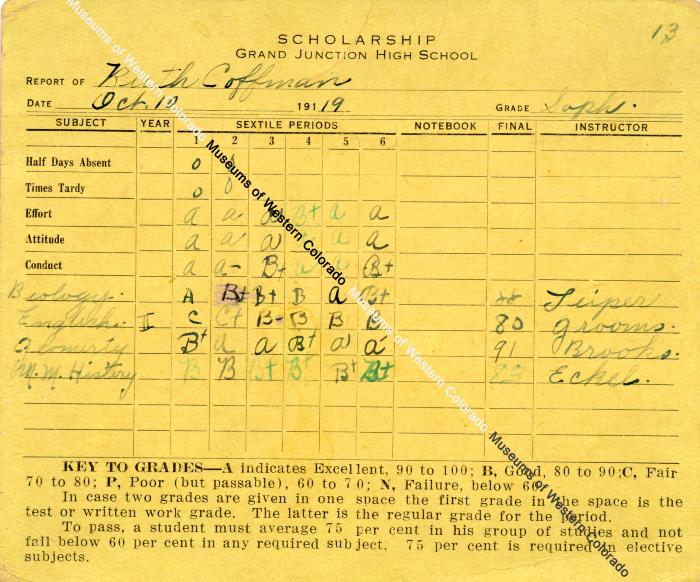 13
SCHOLARSHIP
GRAND JUNCTION HIGH SCHOOL
REPORT OF Ruth Coffman
DATE Oct. 10 191 19 GRADE Soph.
SUBJECT YEAR SEXTILE PERIODS NOTEBOOK FINAL INSTRUCTOR
1 2 3 4 5 6
Half Days Absent 0 0
Times Tardy 0 0
Effort a a a B+ a a
Attitude a a a a a a
Conduct a a- B+ a a B+
Biology. A B+ B+ B a B+
English. II C C+ B- B B B 80 Grooms.
Geometry B+ a a B+ a a 91 Brooks.
M. M. History B B B+ B+ B+ B+ 83 Eckel.
KEY TO GRADES—A indicates Excellent, 90 to 100; B, Good, 80 to 90; C, Fair
70 to 80; P, Poor (but passable), 60 to 70; N, Failure, below 60.
In case two grades are given in one space the first grade in the space is the
test or written work grade. The latter is the regular grade for the period.
To pass, a student must average 75 per cent in his group of studies and not
fall below 60 per cent in any required subject. 75 per cent is required in elective
subjects.
Museums of Western Colorado
Museums of Western Colorado
Museums of Western Colorado
Museums of Western Colorado